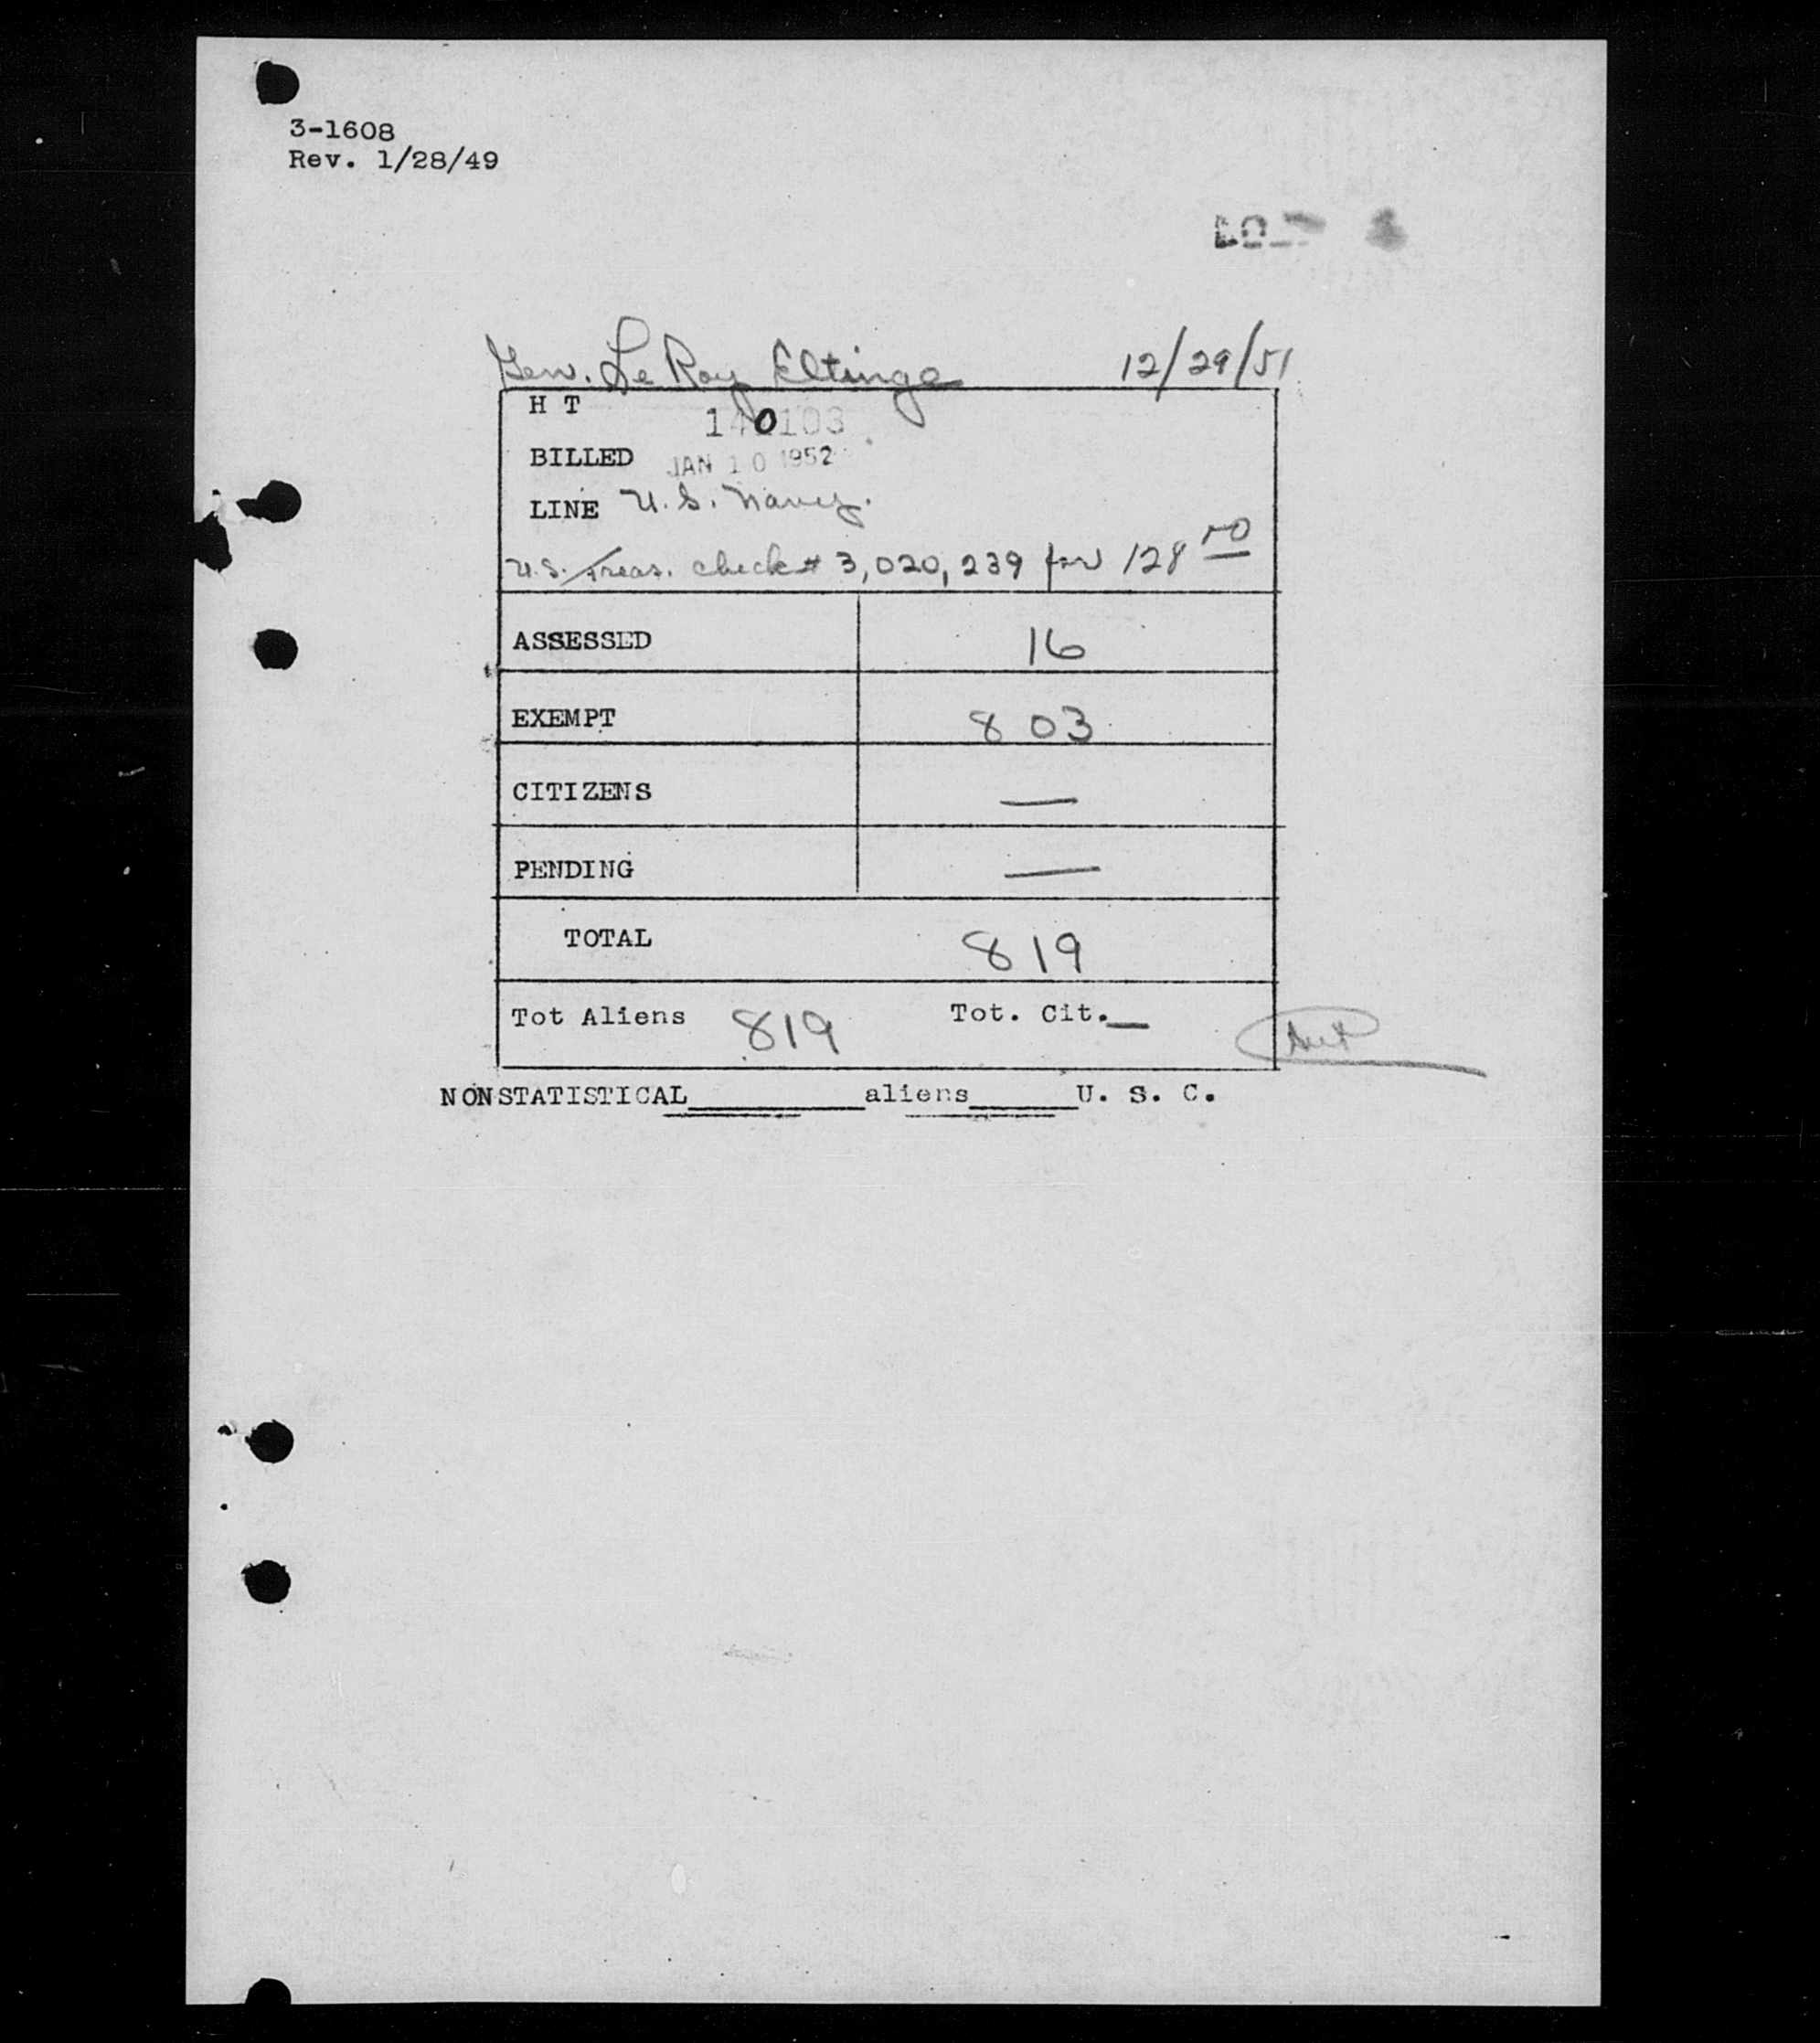 3-1608
Rev. 1/28/49
Gen. Le Roy Eltinge 12/29/51
H T
BILLED JAN 10 1952
LINE U.S. Navy.
U.S. Treas. check # 3,020,239 for 128 00
ASSESSED 16
EXEMPT 803
CITIZENS —
PENDING —
TOTAL 819
Tot Aliens 819 Tot. Cit. —
NONSTATISTICAL________aliens_____U. S. C.